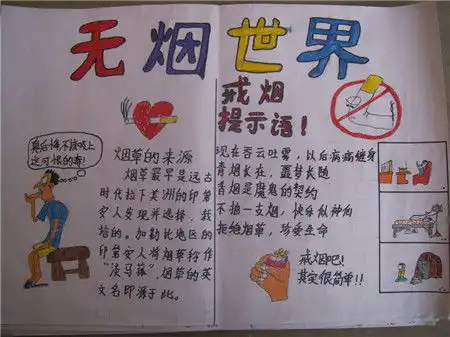 无烟世界
真后悔不该吸上
这可恨的毒!
烟草的来源
烟草最早是远古
时代拉丁美洲的印第
安人发现并选择,栽
培的。加勒比地区的
印第安人将烟草称作
“淡马孤”,烟草的英
文名即源于此。
戒烟
提示语!
现在吞云吐雾,以后病痛缠身
青烟长在,噩梦长随
香烟是魔鬼的契约
不抽一支烟,快乐似神仙
拒绝烟草,珍爱生命
戒烟吧!
其实很简单!!